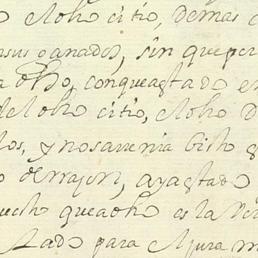 o dho citio, demas
sus ganados, sin que per
a dho, con que a estado en
del dho citio, dho D
los, y no save ni a bisto q
o de rrason, a y a estado
hecho que a dho es la Ver
tado para el jura m